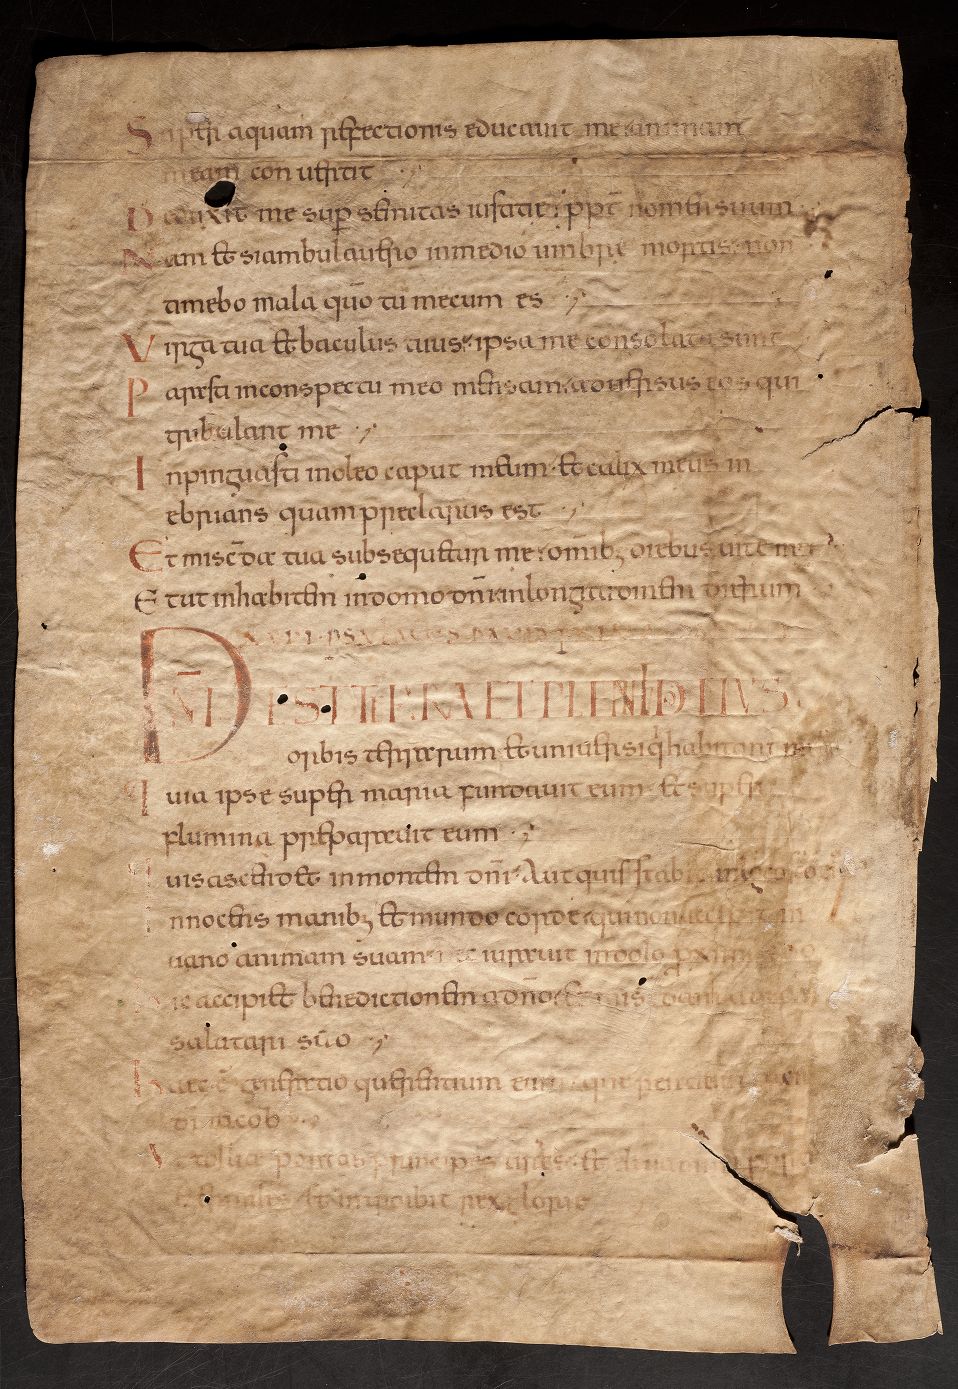 Super aquam refectionis educauit me animam
meam conuertit
Deduxit me sup̱ semitas iusticiae ꝓpt̄ nomen suum
Nam et siambulauero inmedio umbrae mortis non
timebo mala quō tu mecum es
Uirga tua et baculus tuus ipsa me consolata sunt
Parasti inconspectu meo mensam aduersus eos qui
tribulant me
Inpinguasti inoleo caput meum et calix meus in
ebrians quam praeclarus est
Et misc̄dae tua subsequetur me omnib; diebus uitae meae
Et ut inhabitem indomo dn̄i inlongitudinem dierum
DN̄I EST TERRA ET PLENITUDO EIUS
orbis terrarum et uniuersi qui habitant in
ipse super maria fundauit eum et super
flumina praeparauit eum
Quis ascendet inmontem dn̄i Aut quis stabit inloco
Innocens manib; et mundo corde qui non accepit in
uano animam suam nec iurauit indolo
Hic accipiet benedictionem adn̄o
salutari suo
Haec ē generatio querentium eum
dī iacob
Attollite portas principes uestras et eleuamini
et introibit rex glorie